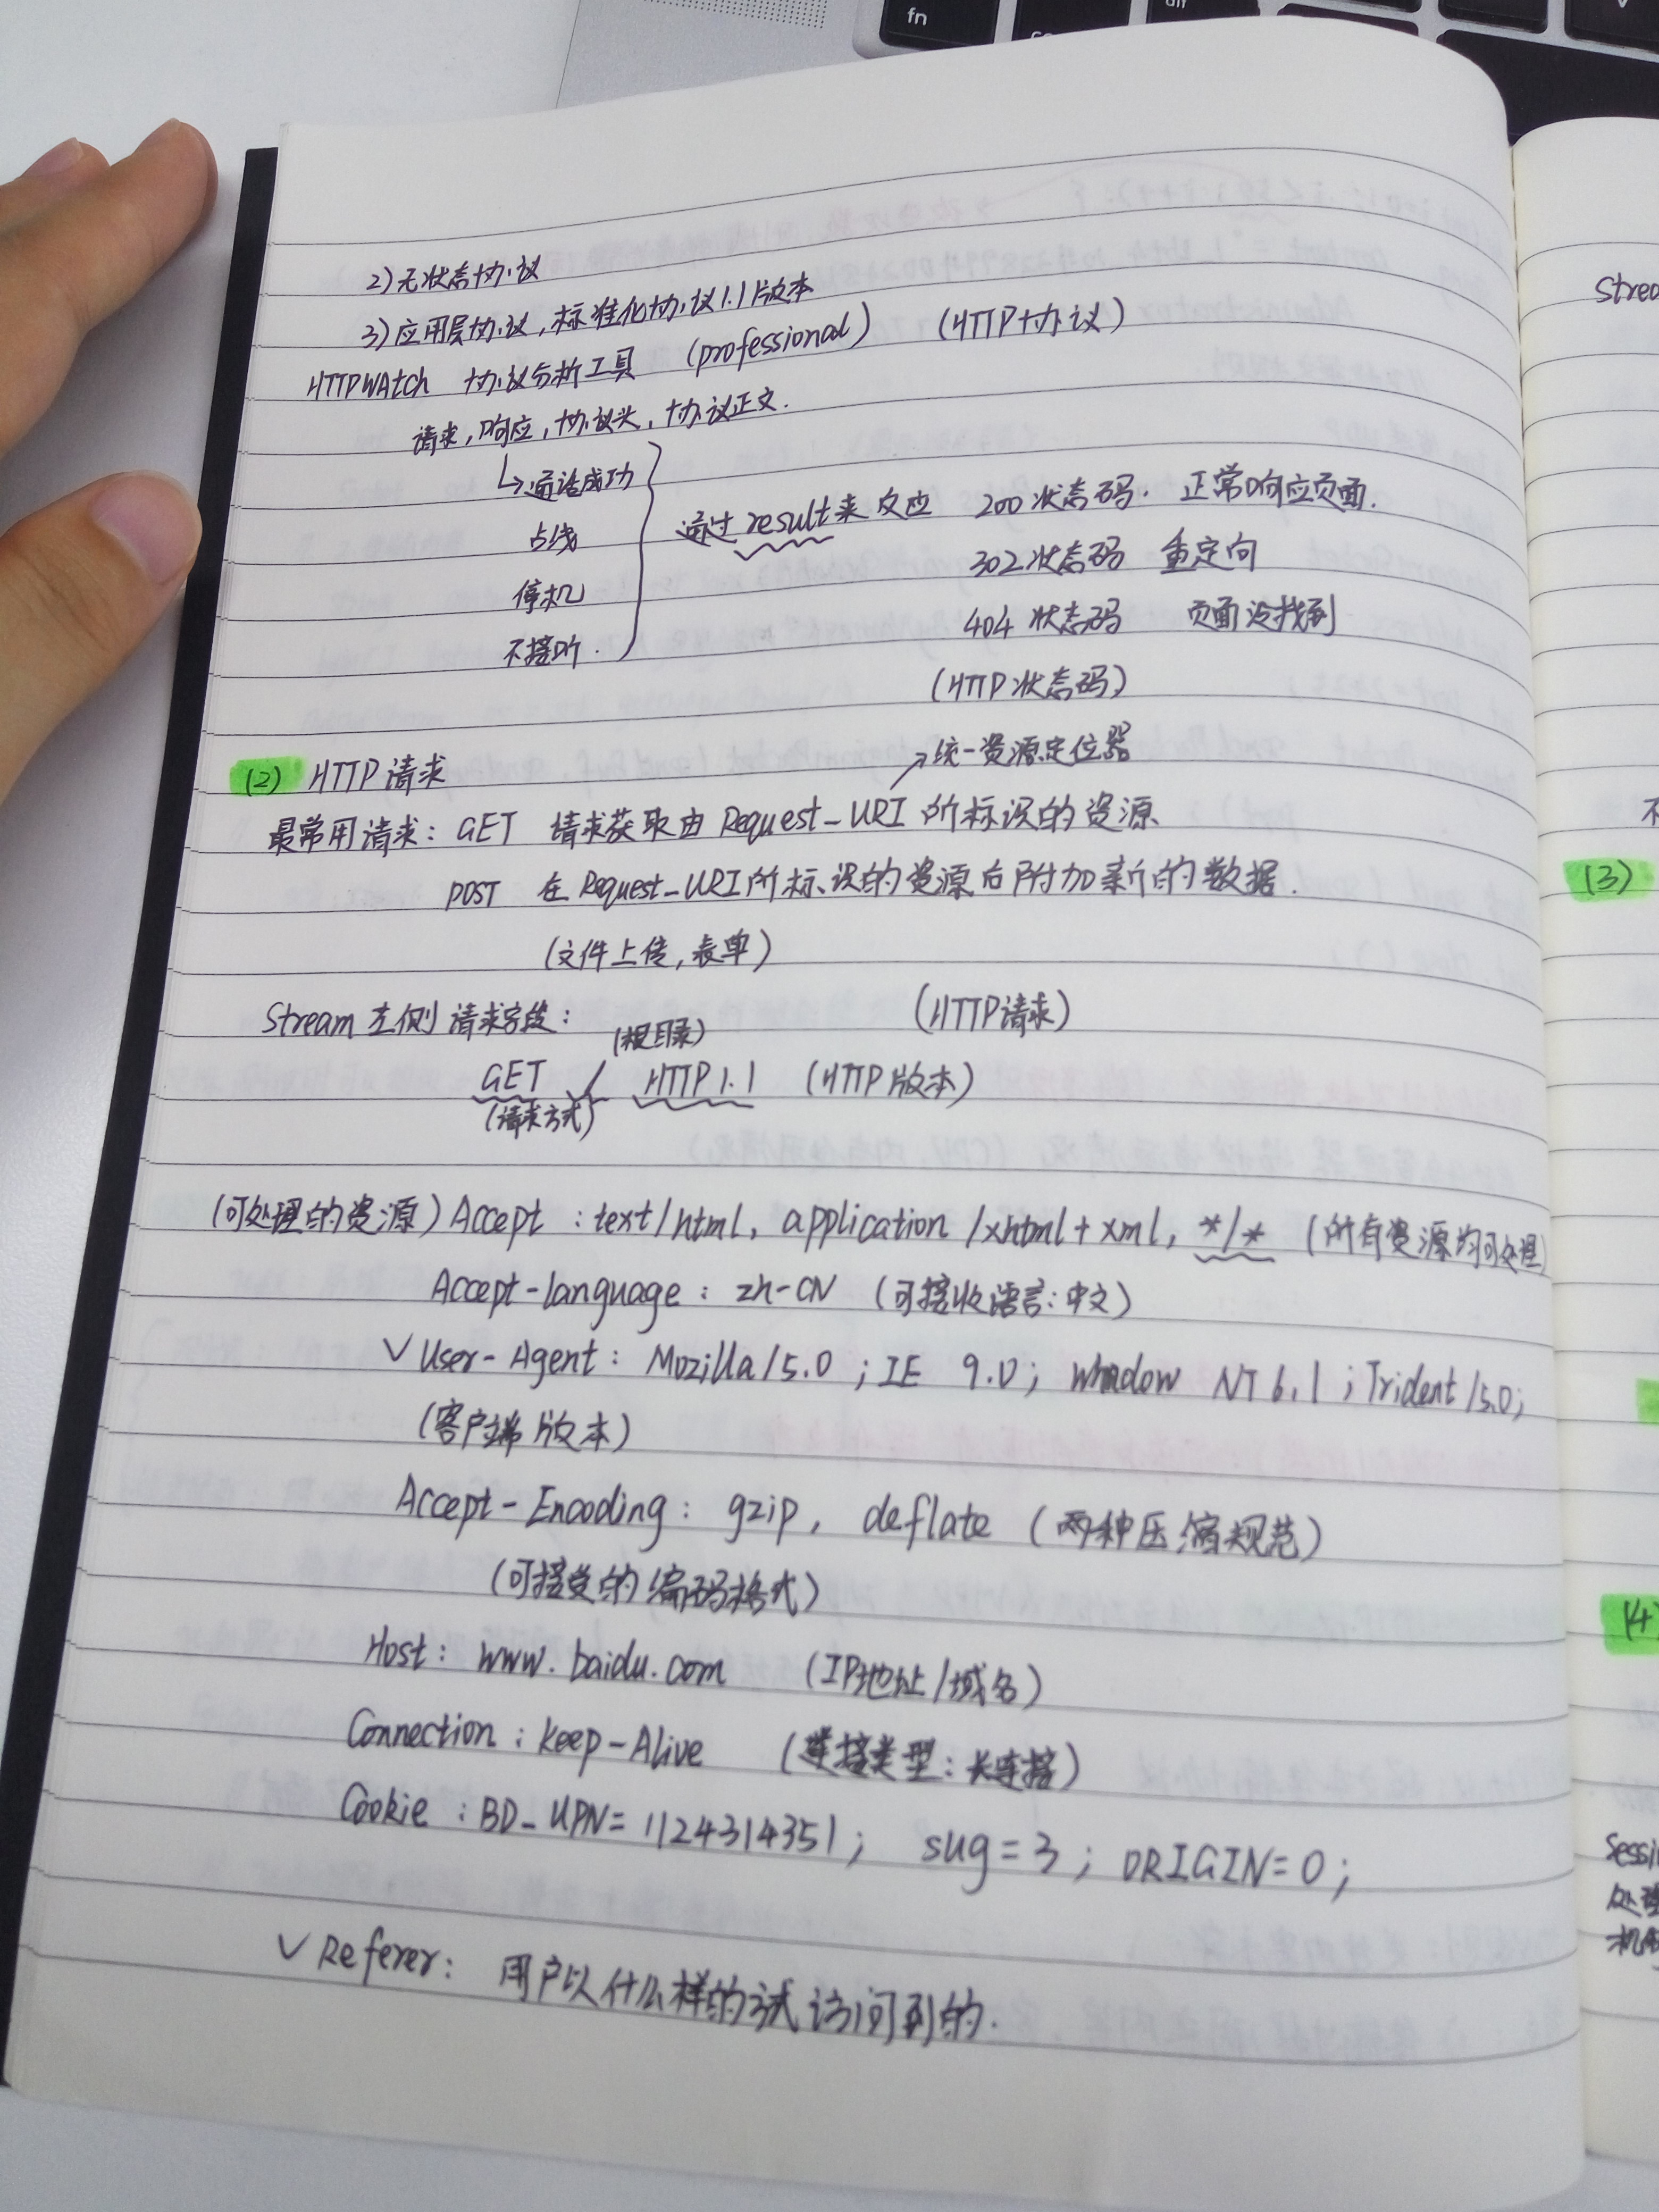 fn
2)无状态协议
3)应用层协议,标准化协议1.1版本
HTTPWAtch 协议分析工具 (professional) (HTTP协议)
请求,响应,协议头,协议正文.
↳通话成功
占线
停机
不接听.
通过result来反应 200状态码. 正常响应页面.
302状态码 重定向
404状态码 页面没找到
(HTTP状态码)
(2) HTTP请求 ↗统一资源定位器
最常用请求: GET 请求获取由Request_URI所标识的资源
POST 在Request_URI所标识的资源后附加新的数据.
(文件上传,表单)
Stream左侧请求字段: (HTTP请求)
(根目录)
GET / HTTP1.1 (HTTP版本)
(请求方式)
(可处理的资源)Accept :text/html, application/xhtml+xml, */* (所有资源均可处理)
Accept-language: zh-CN (可接收语言:中文)
√User-Agent: Mozilla/5.0 ;IE 9.0; Window NT 6.1 ;Trident/5.0;
(客户端版本)
Accept-Encoding: gzip, deflate (两种压缩规范)
(可接受的编码格式)
Host: www.baidu.com (IP地址/域名)
Connection: Keep-Alive (连接类型:长连接)
Cookie :BD_UPN=1124314351; sug=3; ORIGIN=0;
√Referer: 用户以什么样的方式访问到的.
(3)
(4)
处理